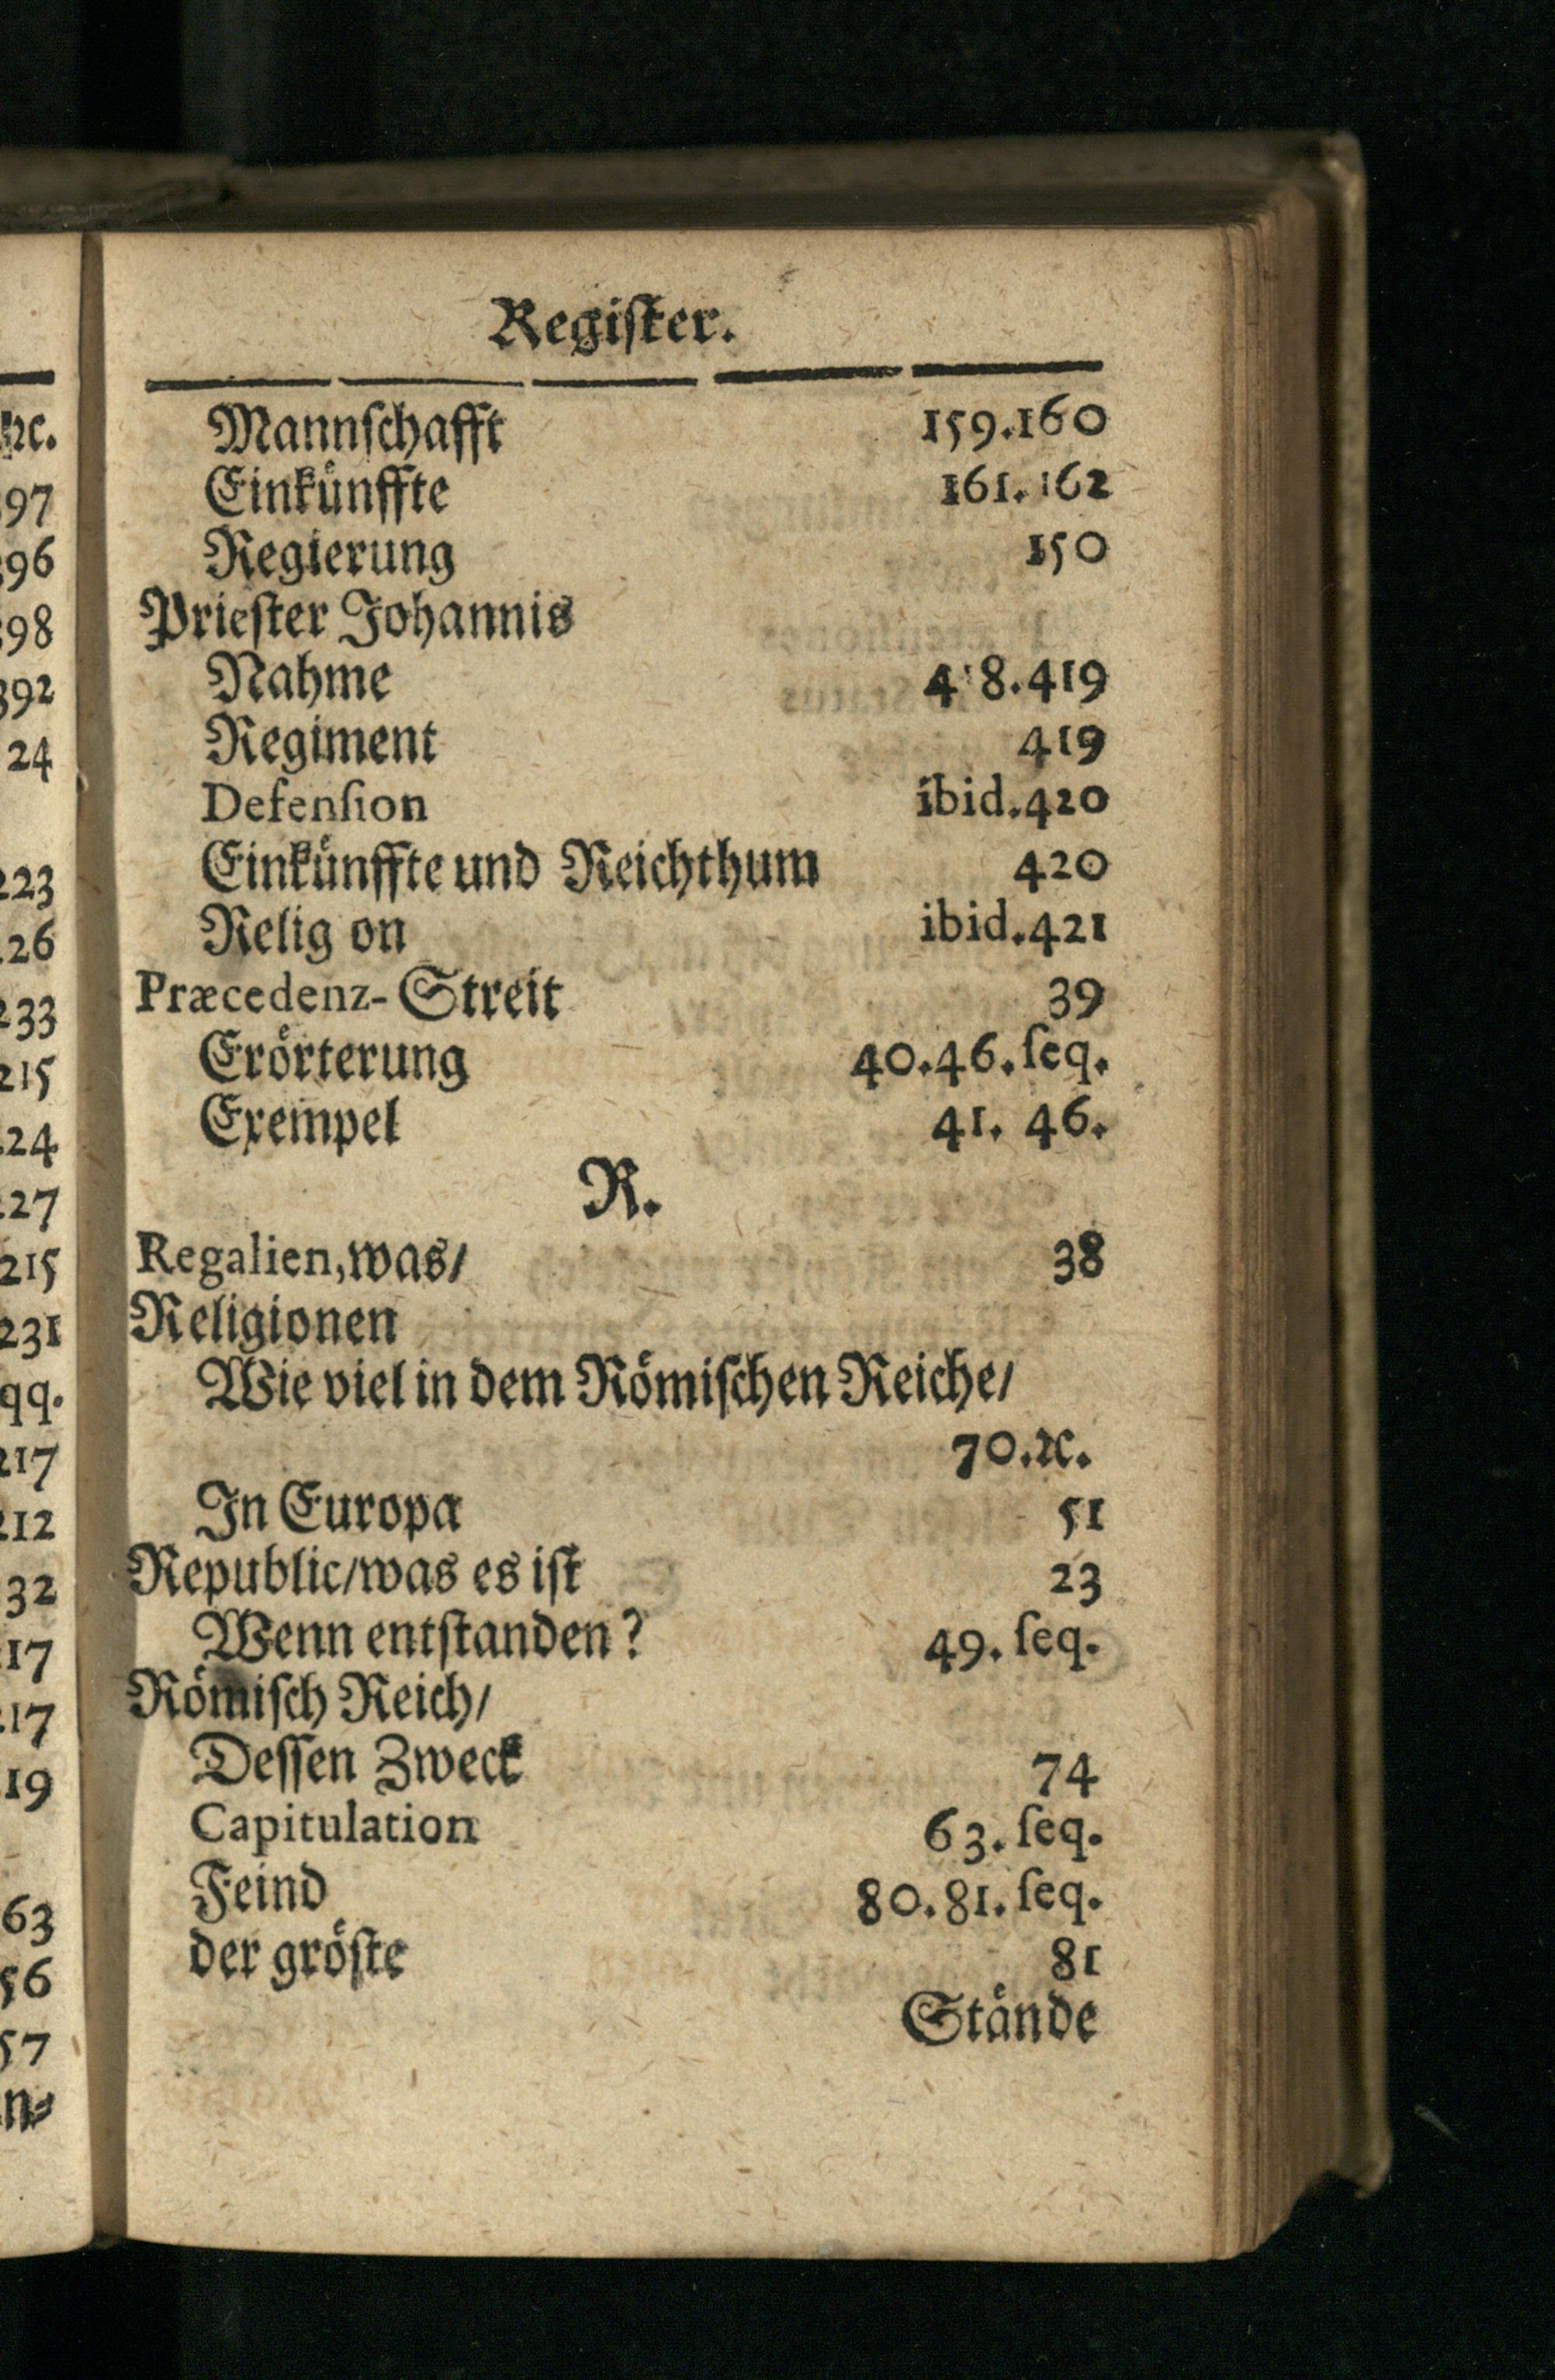 Regiſter.
Mannſchafft 159.160
Einkünffte 161.162
Regierung 150
Prieſter Johannis
Nahme 418.419
Regiment 419
Defenſion ibid.420
Einkünffte und Reichthum 420
Relig on ibid.421
Præcedenz-Streit 39
Erörterung 40.46.ſeq.
Exempel 41. 46.
R.
Regalien,was/ 38
Religionen
Wie viel in dem Römiſchen Reiche/
70.ꝛc.
In Europa 51
Republic/was es iſt 23
Wenn entſtanden? 49. ſeq.
Römiſch Reich/
Deſſen Zweck 74
Capitulation 63. ſeq.
Feind 80.81. ſeq.
der gröſte 81
Stände
ꝛc.
97
96
98
392
24
223
26
233
215
24
27
215
231
qq.
217
212
32
17
17
19
63
56
57
n⸗